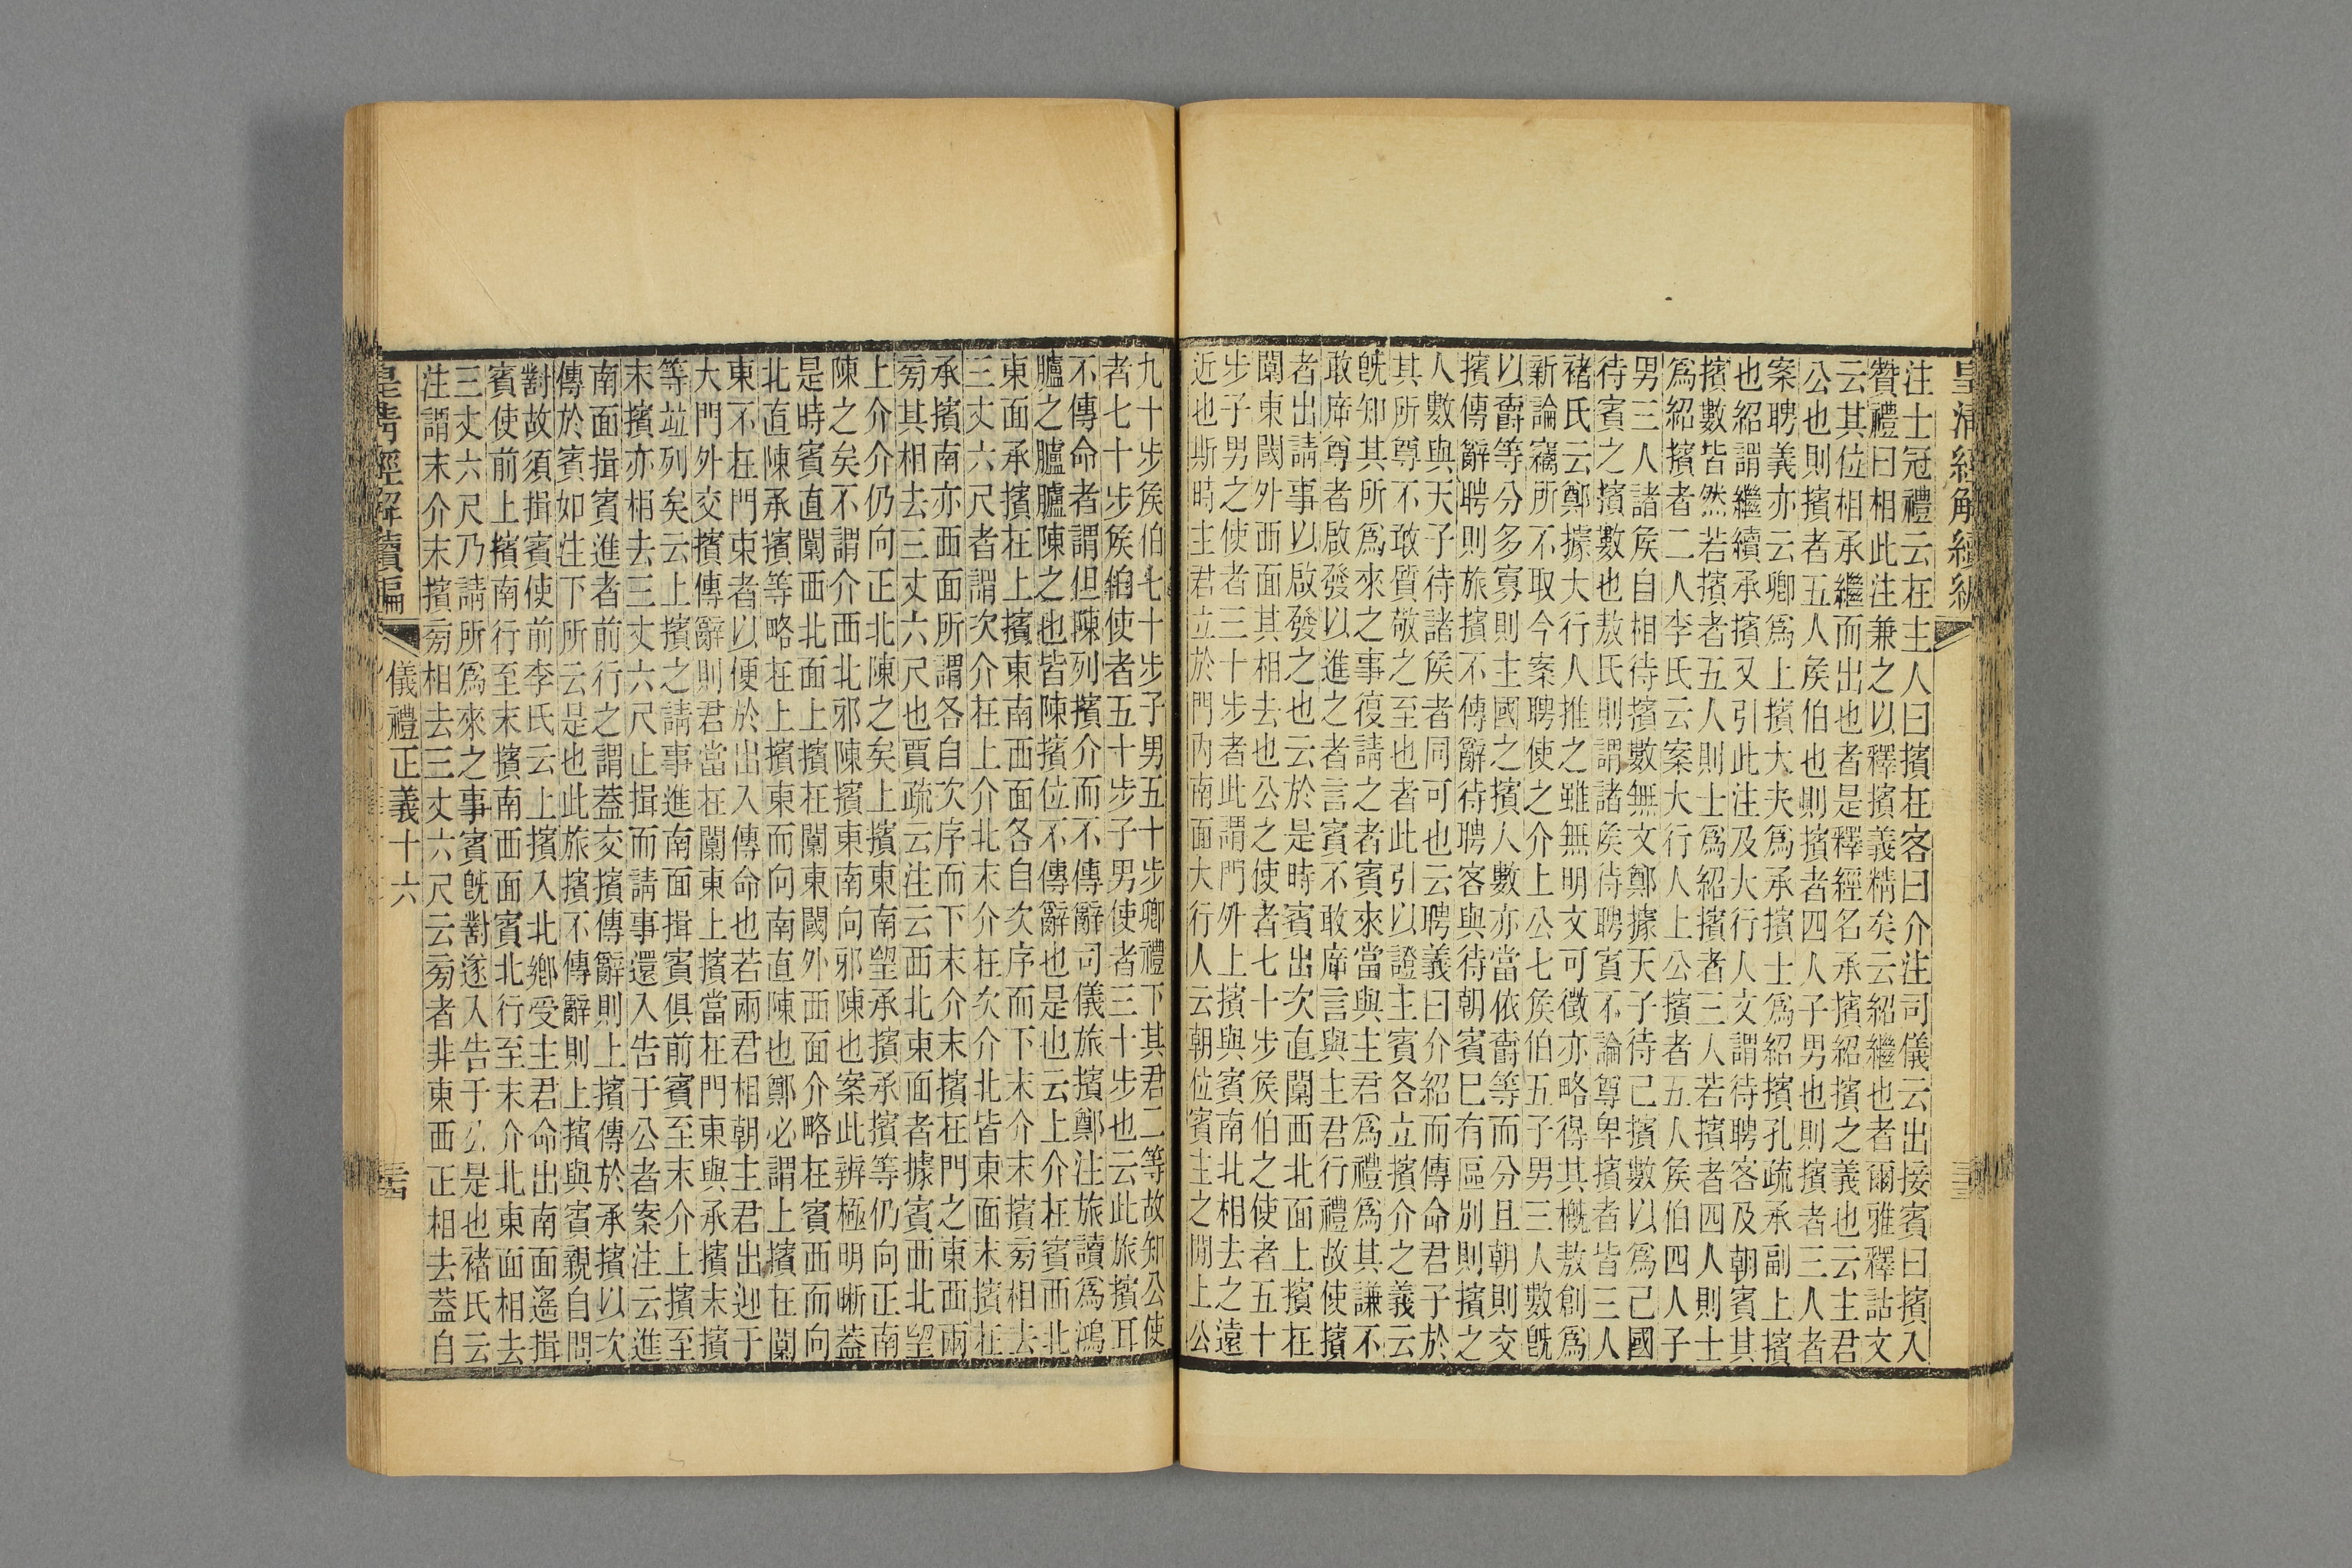 皇清經解續編
注士冠禮云在主人曰擯在客曰介注司儀云出接賓曰擯入
贊禮曰相此注兼之以釋擯義精矣云紹繼也者爾雅釋詁文
云其位相承繼而出也者是釋經名承擯紹擯之義也云主君
公也則擯者五人矦伯也則擯者四人子男也則擯者三人者
案聘義亦云卿爲上擯大夫爲承擯士爲紹擯孔疏承副上擯
也紹謂繼續承擯又引此注及大行人文謂待聘客及朝賓其
擯數皆然若擯者五人則士爲紹擯者三人若擯者四人則士
爲紹擯者二人李氏云案大行人上公擯者五人矦伯四人子
男三人諸矦自相待擯數無文鄭據天子待己擯數以爲己國
待賓之擯數也敖氏則謂諸矦待聘賓不論尊卑擯者皆三人
褚氏云鄭據大行人推之雖無明文可徵亦略得其槪敖創爲
新論竊所不取今案聘使之介上公七矦伯五子男三人數旣
以爵等分多寡則主國之擯人數亦當依爵等而分且朝則交
擯傳辭聘則旅擯不傳辭待聘客與待朝賓已有區別則擯之
人數與天子待諸矦者同可也云聘義曰介紹而傳命君子於
其所尊不敢質敬之至也者此引以證主賓各立擯介之義云
旣知其所爲來之事復請之者賓來當與主君爲禮爲其謙不
敢庠尊者啟發以進之者言賓不敢庠言與主君行禮故使擯
者出請事以啟發之也云於是時賓出次直闑西北面上擯在
闑東閾外西面其相去也公之使者七十步矦伯之使者五十
步子男之使者三十步者此謂門外上擯與賓南北相去之遠
近也斯時主君立於門內南面大行人云朝位賓主之閒上公
九十步矦伯七十步子男五十步卿禮下其君二等故知公使
者七十步矦伯使者五十步子男使者三十步也云此旅擯耳
不傳命者謂但陳列擯介而不傳辭司儀旅擯鄭注旅讀爲鴻
臚之臚臚陳之也皆陳擯位不傳辭也是也云上介在賓西北
東面承擯在上擯東南西面各自次序而下末介末擯旁相去
三丈六尺者謂次介在上介北末介在次介北皆東面末擯在
承擯南亦西面所謂各自次序而下末介末擯在門之東西兩
旁其相去三丈六尺也賈疏云注云西北東面者據賓西北望
上介介仍向正北陳之矣上擯東南望承擯承擯等仍向正南
陳之矣不謂介西北邪陳擯東南向邪陳也案此辨極明晰蓋
是時賓直闑西北面上擯在闑東閾外西面介略在賓西而向
北直陳承擯等略在上擯東而向南直陳也鄭必謂上擯在闑
東不在門東者以便於出入傳命也若兩君相朝主君出迎于
大門外交擯傳辭則君當在闑東上擯當在門東與承擯末擯
等竝列矣云上擯之請事進南面揖賓俱前賓至末介上擯至
末擯亦相去三丈六尺止揖而請事還入告于公者案注云進
南面揖賓進者前行之謂蓋交擯傳辭則上擯傳於承擯以次
傳於賓如注下所云是也此旅擯不傳辭則上擯與賓親自問
對故須揖賓使前李氏云上擯入北鄉受主君命出南面遙揖
賓使前上擯南行至末擯南西面賓北行至末介北東面相去
三丈六尺乃請所爲來之事賓旣對遂入告于公是也褚氏云
注謂末介末擯旁相去三丈六尺云旁者非東西正相去蓋自
皇淸經解續編
儀禮正義十六